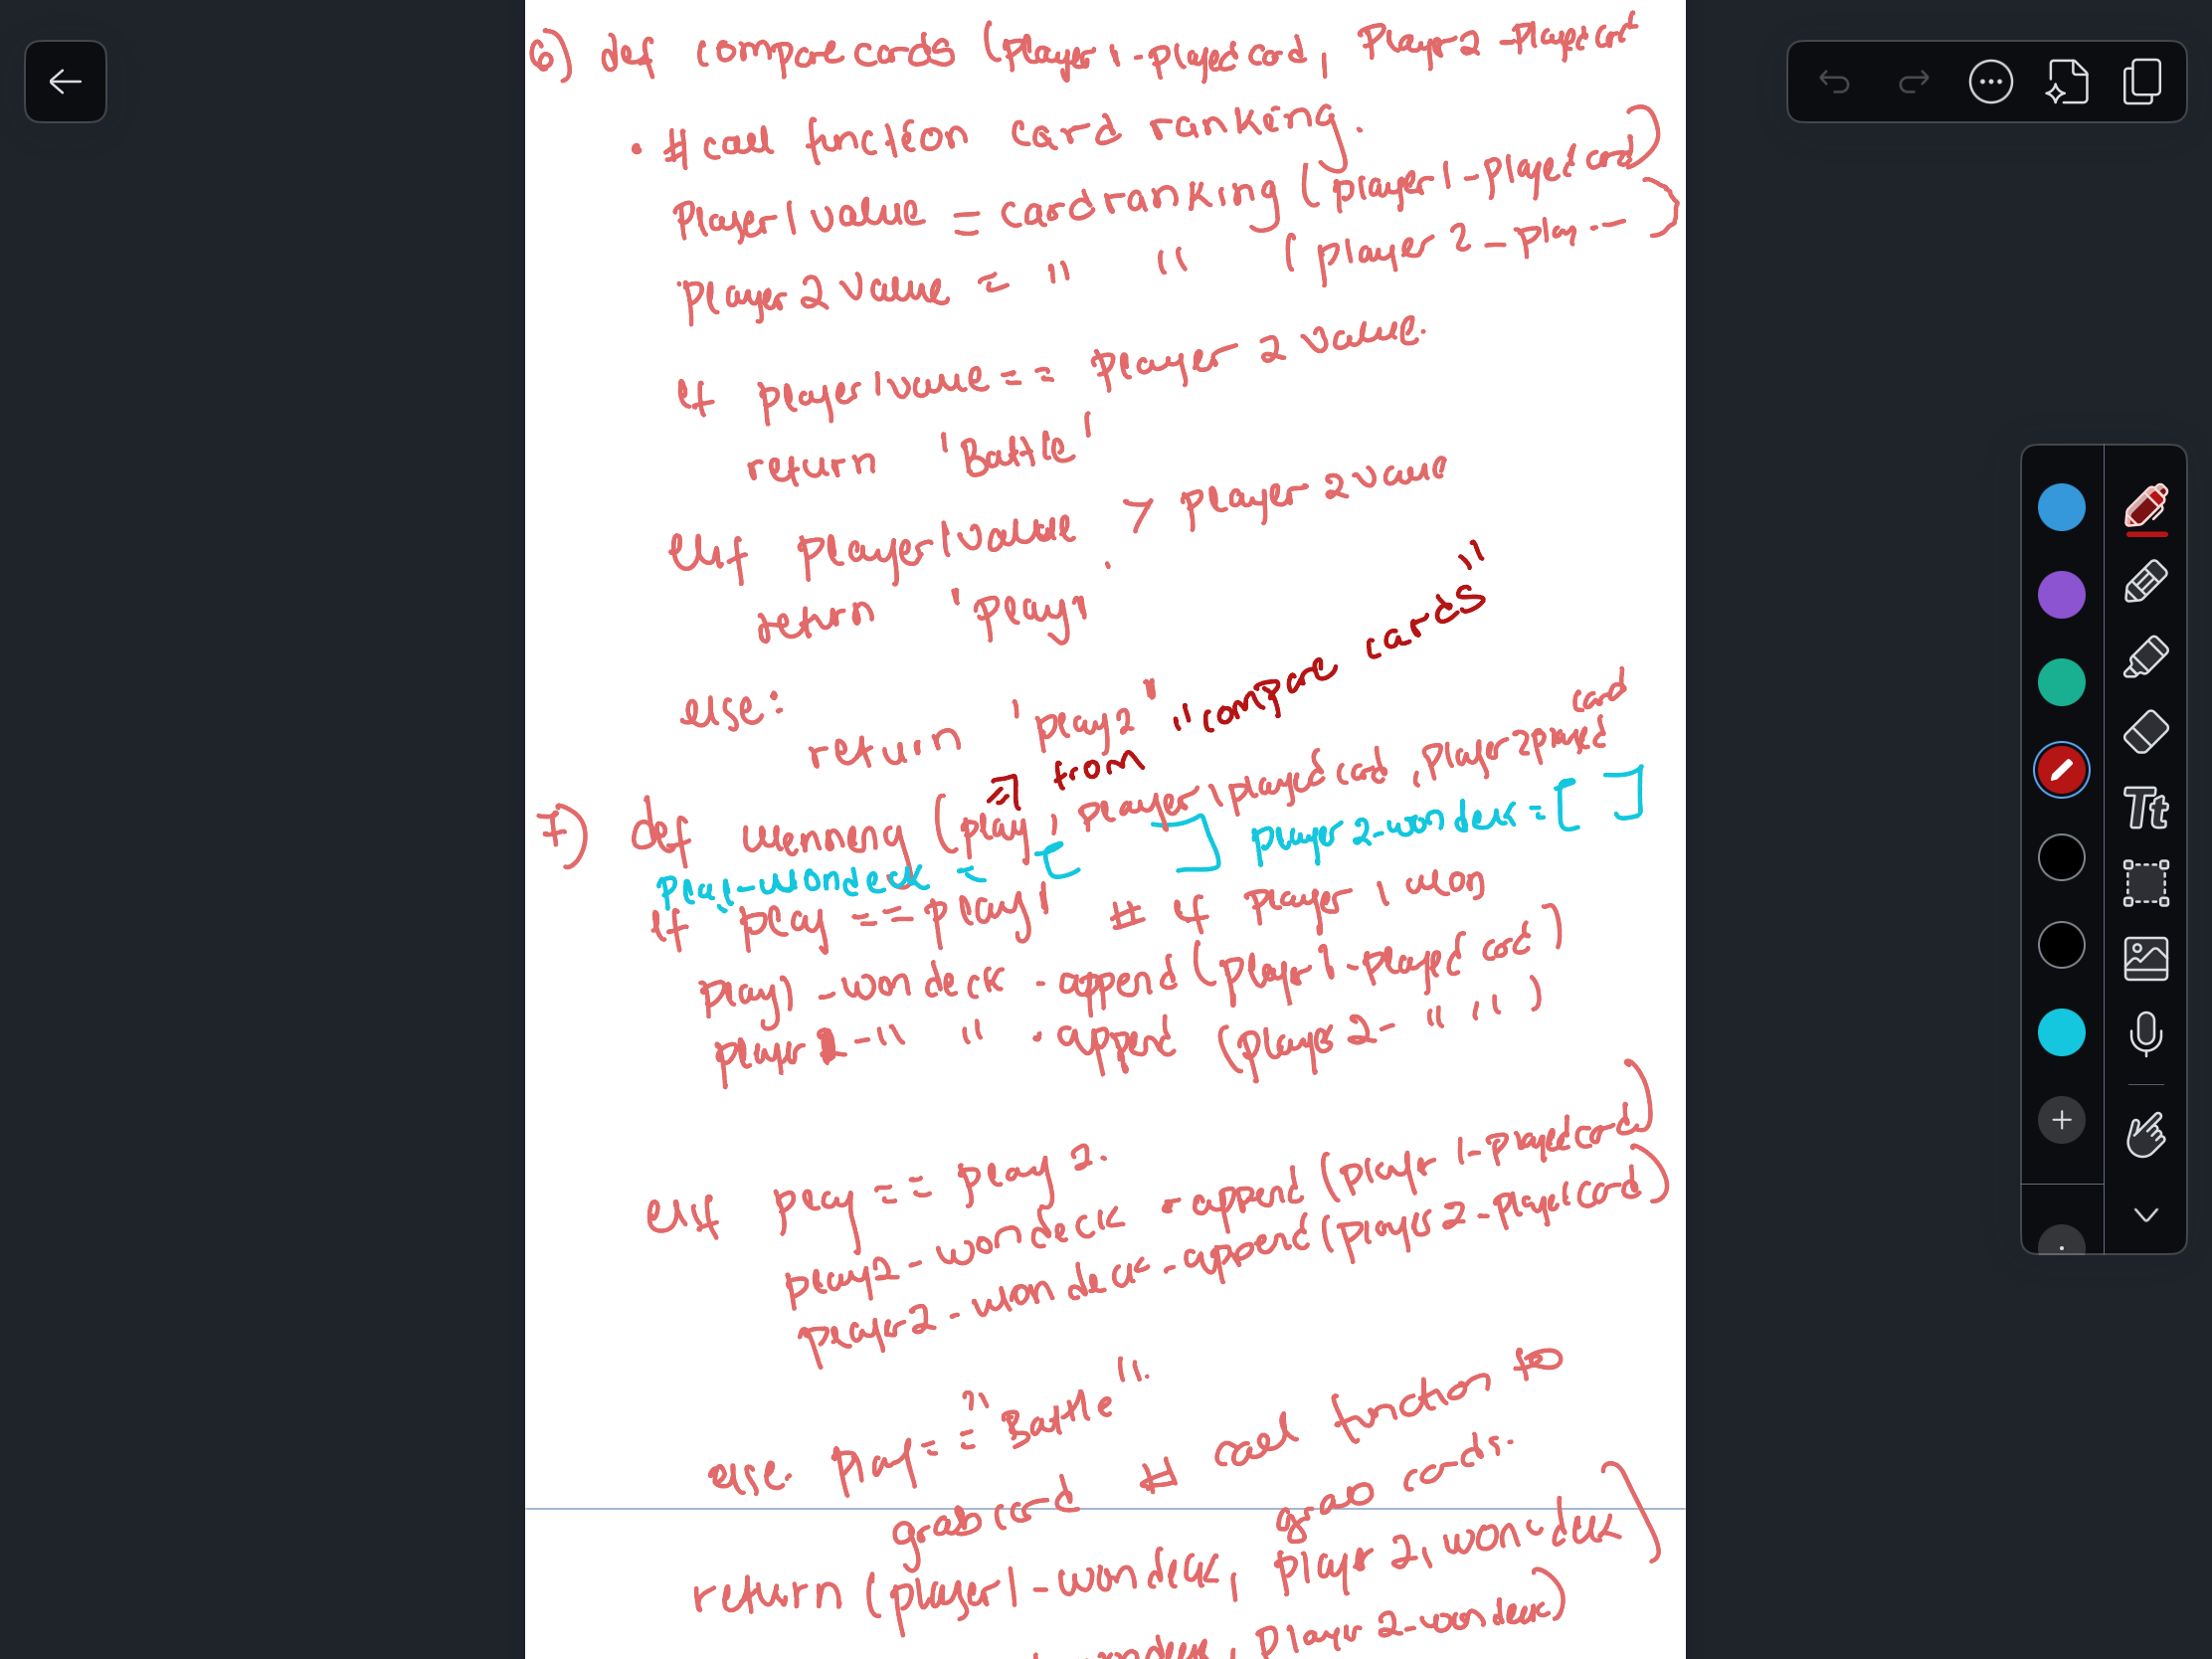 6) def compare cards (Player 1-played card, Player 2-played card
• # call function card ranking.
Player1value = cardranking (player1-played card)
Player2value = " " (player 2-play...)
if player1value == player 2 value.
return 'Battle'
elif player1value > player 2 value
return 'play1
else:
return 'play2"
⇒ from "compare cards"
7) def winning (play, player1played card, Player2played card
play-wondeck = [ ] player 2-wondeck = [ ]
if play == play1 # if player 1 won
play1-wondeck-append (player1-played card)
player 1-" " .append (player 2- " " )
elif play == play 2.
play2-wondeck-append (player 1-played card)
player2-wondeck-append (player 2-played card)
else play == "Battle".
grab card # call function to
grab cards.
return (player1-wondeck, player 2, wondeck)
wondeck, player 2-wondeck)
Tt